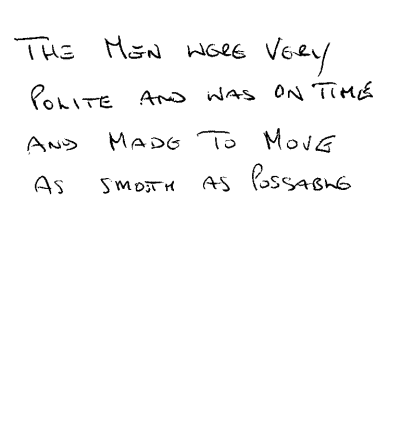 THE MEN WERE VERY
POLITE AND WAS ON TIME
AND MADE TO MOVE
AS SMOOTH AS POSSABLE